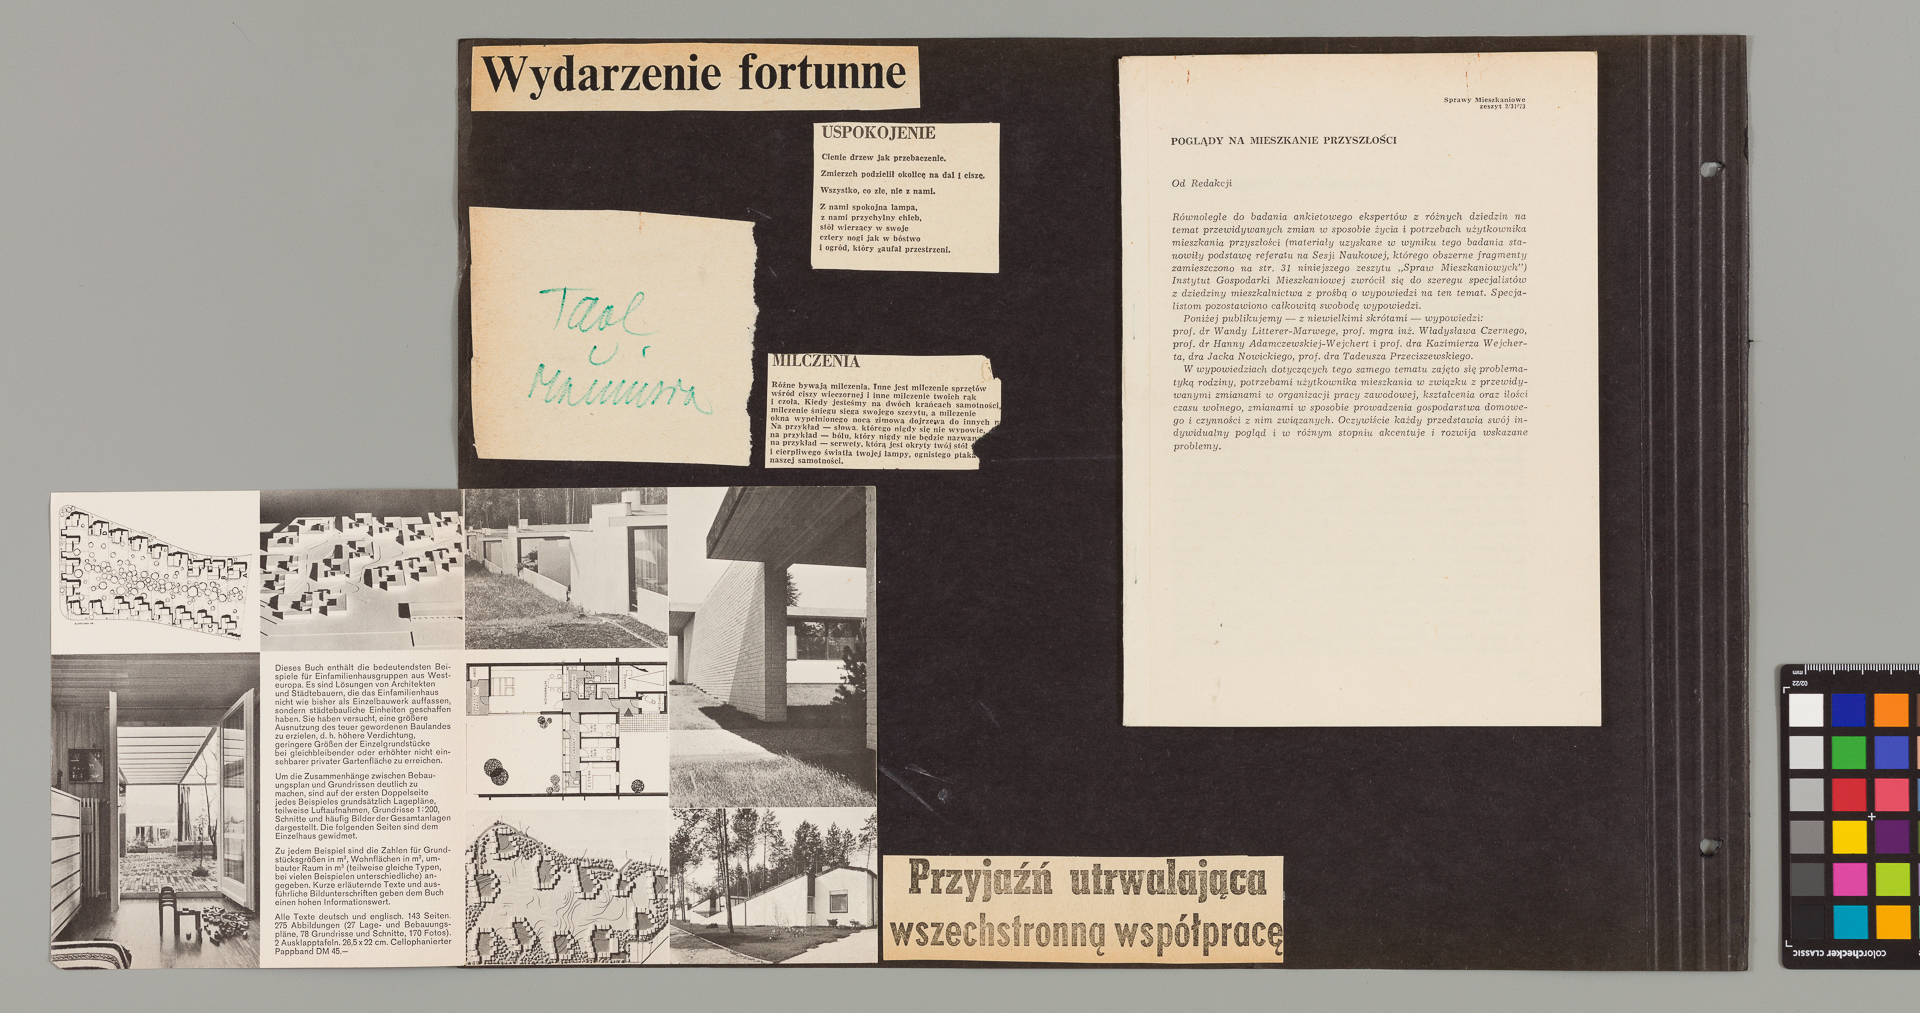 Wydarzenie fortunne
USPOKOJENIE
Cienie drzew jak przebaczenie.
Zmierzch podzielił okolicę na dal i ciszę.
Wszystko, co złe, nie z nami.
Z nami spokojna lampa,
z nami przychylny chleb,
stół wierzący w swoje
cztery nogi jak w bóstwo
i ogród, który zaufał przestrzeni.
MILCZENIA
Różne bywają milczenia. Inne jest milczenie sprzętów
wśród ciszy wieczornej i inne milczenie twoich rąk
i czoła. Kiedy jesteśmy na dwóch krańcach samotności,
milczenie śniegu sięga swojego szczytu, a milczenie
okna wypełnionego nocą zimową dojrzewa do innych
Na przykład — słowa, którego nigdy się nie wypowie,
na przykład — bólu, który nigdy nie będzie
na przykład — serwety, którą jest okryty twój stół
i cierpliwego światła twojej lampy, ognistego ptaka
naszej samotności.
Sprawy Mieszkaniowe
zeszyt
POGLĄDY NA MIESZKANIE PRZYSZŁOŚCI
Od Redakcji
Równolegle do badania ankietowego ekspertów z różnych dziedzin na
temat przewidywanych zmian w sposobie życia i potrzebach użytkownika
mieszkania przyszłości (materiały uzyskane w wyniku tego badania sta-
nowiły podstawę referatu na Sesji Naukowej, którego obszerne fragmenty
zamieszczono na str. 31 niniejszego zeszytu „Spraw Mieszkaniowych”)
Instytut Gospodarki Mieszkaniowej zwrócił się do szeregu specjalistów
z dziedziny mieszkalnictwa z prośbą o wypowiedzi na ten temat. Specja-
listom pozostawiono całkowitą swobodę wypowiedzi.
Poniżej publikujemy — z niewielkimi skrótami — wypowiedzi:
prof. dr Wandy Litterer-Marwege, prof. mgra inż. Władysława Czernego,
prof. dr Hanny Adamczewskiej-Wejchert i prof. dra Kazimierza Wejcher-
ta, dra Jacka Nowickiego, prof. dra Tadeusza Przeciszewskiego.
W wypowiedziach dotyczących tego samego tematu zajęto się problema-
tyką rodziny, potrzebami użytkownika mieszkania w związku z przewidy-
wanymi zmianami w organizacji pracy zawodowej, kształcenia oraz ilości
czasu wolnego, zmianami w sposobie prowadzenia gospodarstwa domowe-
go i czynności z nim związanych. Oczywiście każdy przedstawia swój in-
dywidualny pogląd i w różnym stopniu akcentuje i rozwija wskazane
problemy.
Dieses Buch enthält die bedeutendsten Bei-
spiele für Einfamilienhausgruppen aus West-
europa. Es sind Lösungen von Architekten
und Städtebauern, die das Einfamilienhaus
nicht wie bisher als Einzelbauwerk auffassen,
sondern städtebauliche Einheiten geschaffen
haben. Sie haben versucht, eine größere
Ausnutzung des teuer gewordenen Baulandes
zu erzielen, d. h. höhere Verdichtung,
geringere Größen der Einzelgrundstücke
bei gleichbleibender oder erhöhter nicht ein-
sehbarer privater Gartenfläche zu erreichen.
Um die Zusammenhänge zwischen Bebau-
ungsplan und Grundrissen deutlich zu
machen, sind auf der ersten Doppelseite
jedes Beispieles grundsätzlich Lagepläne,
teilweise Luftaufnahmen, Grundrisse 1:200,
Schnitte und häufig Bilder der Gesamtanlagen
dargestellt. Die folgenden Seiten sind dem
Einzelhaus gewidmet.
Zu jedem Beispiel sind die Zahlen für Grund-
stücksgrößen in m², Wohnflächen in m², um-
bauter Raum in m³ (teilweise gleiche Typen,
bei vielen Beispielen unterschiedliche) an-
gegeben. Kurze erläuternde Texte und aus-
führliche Bildunterschriften geben dem Buch
einen hohen Informationswert.
Alle Texte deutsch und englisch. 143 Seiten.
275 Abbildungen (27 Lage- und Bebauungs-
pläne, 78 Grundrisse und Schnitte, 170 Fotos).
2 Ausklapptafeln. 26,5 x 22 cm. Cellophanierter
Pappband DM 45.—
Przyjaźń utrwalająca
wszechstronną współpracę
mm
02/22
colorchecker CLASSIC